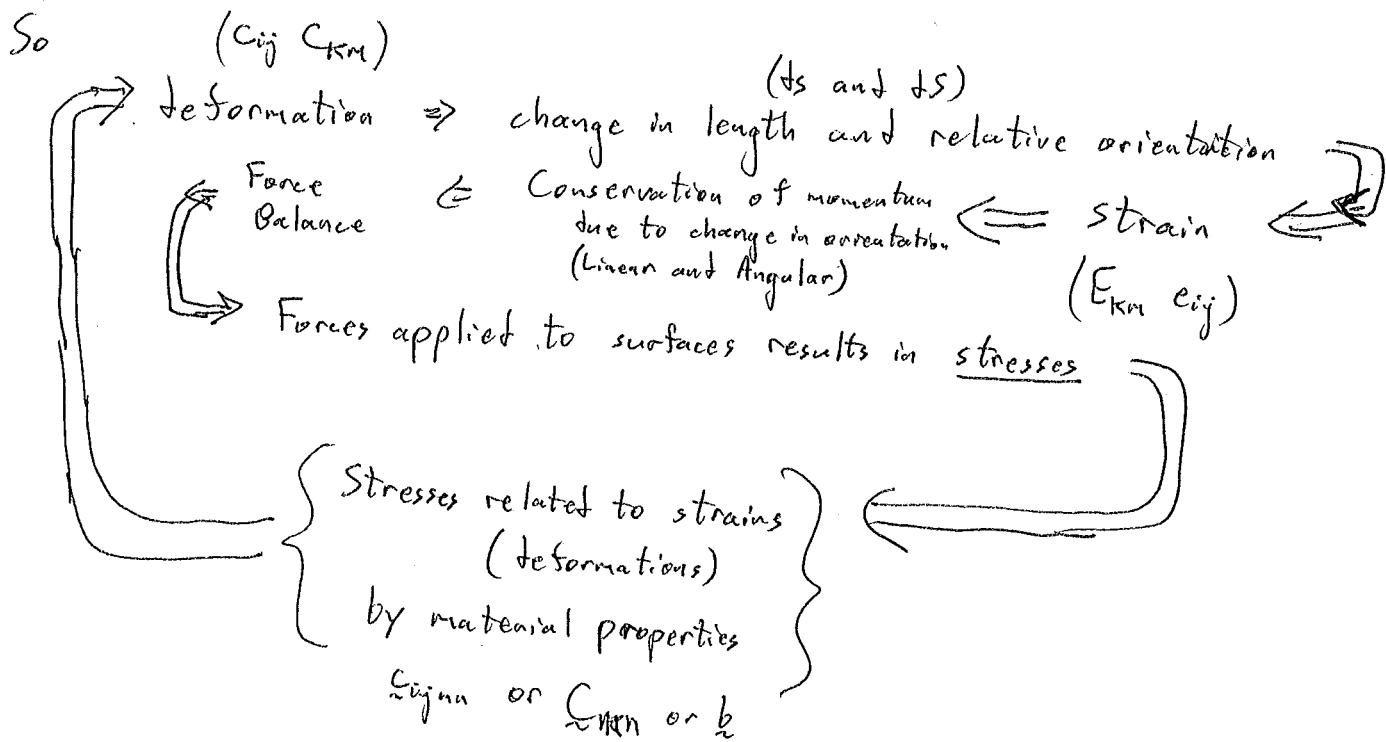 So
(cij CKM)
(ds and dS)
deformation ⇒ change in length and relative orientaition
⇐ Force Balance ⇐ Conservation of momentum
due to change in orientation
(Linear and Angular)
⇐ strain ⇐
(EKM eij)
Forces applied to surfaces results in stresses
Stresses related to strains
(deformations)
by material properties
or or b